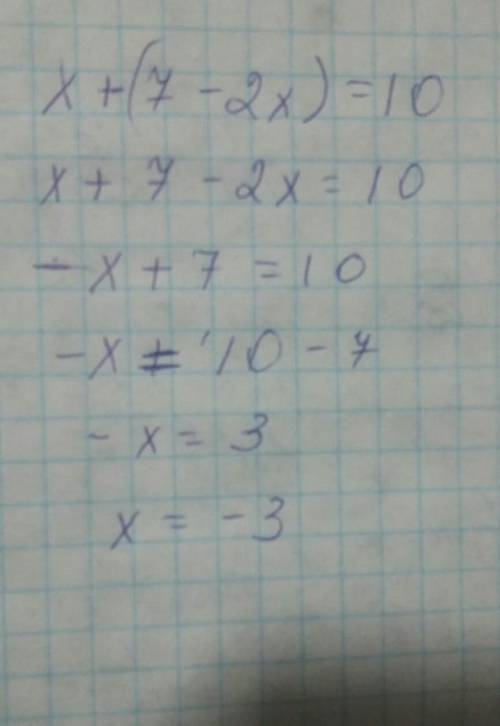 x + (7 - 2x) = 10
x + 7 - 2x = 10
- x + 7 = 10
- x = 10 - 7
- x = 3
x = - 3